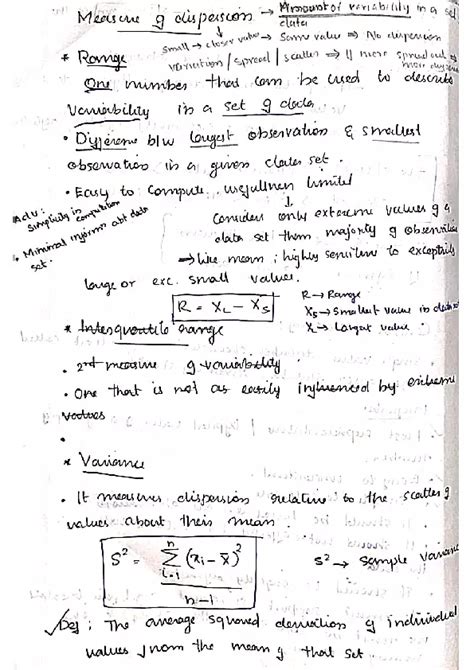 Measure of dispersion → Amount of variability in a set
data
small → closer value → Same value ⇒ No dispersion
variation / spread / scatter → If more spread out →
* Range
One number that can be used to describe
Variability in a set of data
• Difference b/w largest observation & smallest
observation in a given data set.
• Easy to compute. usefullness limited
Adv:
Simplicity in computation
↓
Considers only extreme values of a
data set then majority of observation
Minimal inform abt data
set.
→ Like mean; highly sensitive to exceptionally
large or exc. small values.
R = X_L − X_S
R → Range
X_S → Smallest value in
X → Largest value.
* Interquartile range
• 2nd measure of variability
• One that is not as easily influenced by extreme
values
•
* Variance
• It measures dispersion relative to the scatter of
values about their mean.
S² = Σ_{i=1}^{n} (x_i − x̄)² / n−1
S² → Sample Variance
✓ Def: The average squared deviation of individual
values from the mean of that set